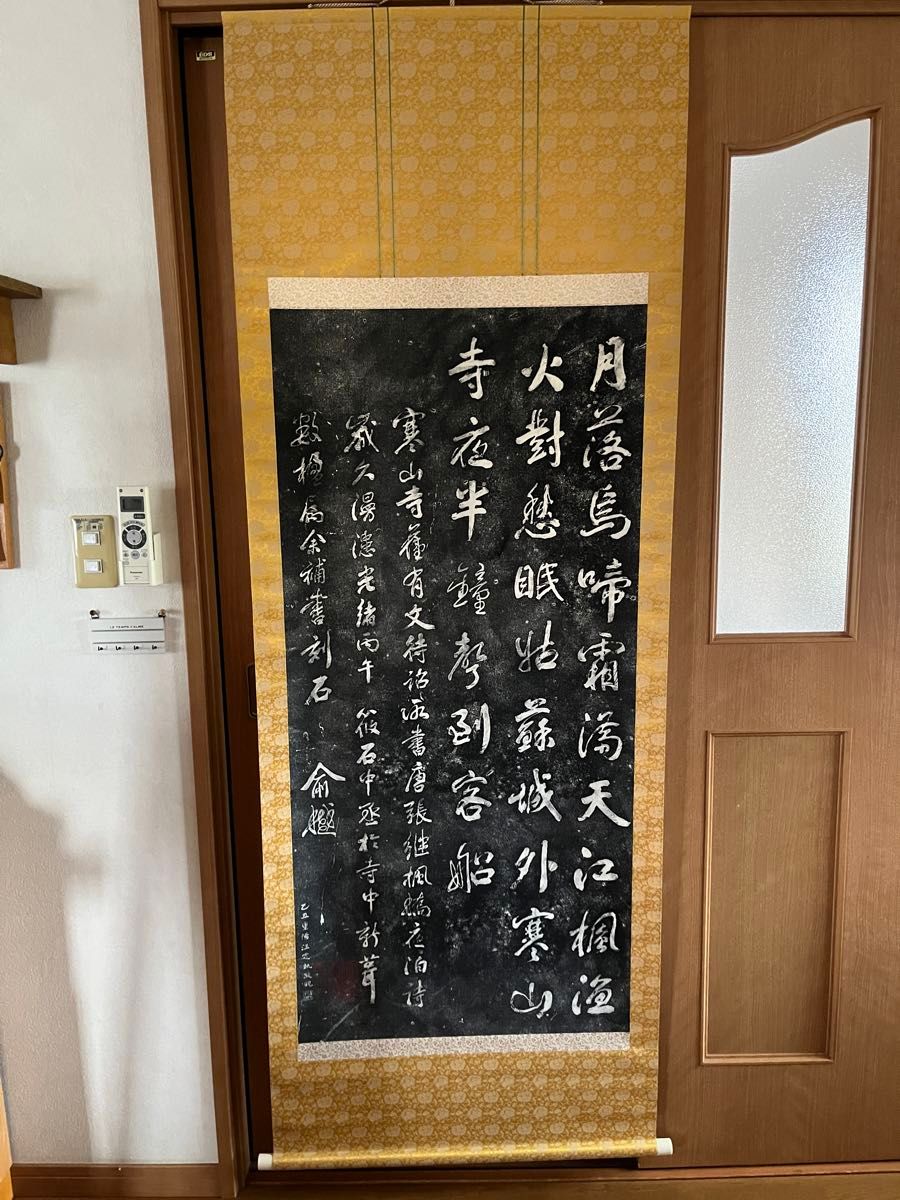 月落烏啼霜満天江楓漁
火對愁眠姑蘇城外寒山
寺夜半鐘聲到客船
寒山寺舊有文待詔所書唐張継楓橋夜泊詩
歲久漫漶光緒丙午筱石中丞於寺中新葺
數楹屬余補書刻石〻〻俞樾
Panasonic